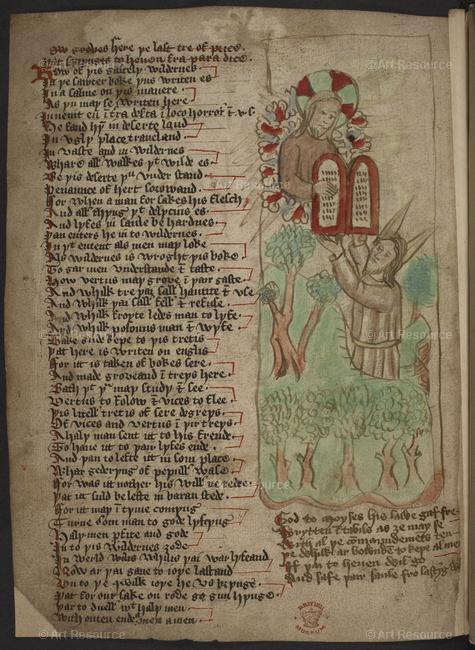 Now groves here ye last tre of pites
Þat spryngs to heuen fra paradice
Now of þis gastely wildernes
In þe sawter boke þus writen es
In a salme on þis manere
As þu may se writen here
Inuenit eu i tra deserta i loco horroris & vs
He fand hy in deserte land
In vgly place traueland
In vaste and in wildernes
Whare all walkes þt wilde es
Be þis deserte þu vnder stand
Penaunce of hert sorowand
For when a man for sakes his flesch
And all thyng þt delytus es
And lyfes in saule be hardnes
Þan enters he in to wildernes
In þt entent als men may loke
Þis wildernes is wroght þis boke
To gar men vnderstande & taste
How vertus may grove i þair gaste
And whilk tre þai sall hauntte & vse
And whilk þai sall fell & refuse
And whilk froyte ledes man to lyfe
And whilk poisonus man & wyfe
Take gude kepe to þis tretis
Þat here is writen on englis
For it is taken of bokes sere
And made groveand i treys here
Bath þt þu may study & see
Vertus to folow & vices to flee
Þis litell tretis of sere degreys
Of vices and vertus i þir treys
A haly man sent it to his frende
To haue it to þair lyfes ende
And þan to lefte it in som place
Whar gederyng of pepull wase
For was it nother his will ne rede
Þat it suld be lefte in baran stede
For it may i tyme comyng
Turne som man to gode lyfyng
Haly men qwite and gode
In to þis wildernes yode
In werld whar whils þai war lyfeand
Trow ar þai gane to ioye lastand
Vn to þe whilk ioye he vs bryng
Þat for our sake on rode gon hyng
Þar to duell wt haly men
With outen ende men amen
God to moyses his lawe gaf fre
Wrytten i tabils as ze may se
With al þe commaundemets ten
Þe whilk ar bowunde to kepe al men
If þai to heuen wil go
And safe þair saule fro lastyng wo
BRITISH MUSEUM
Art Resource